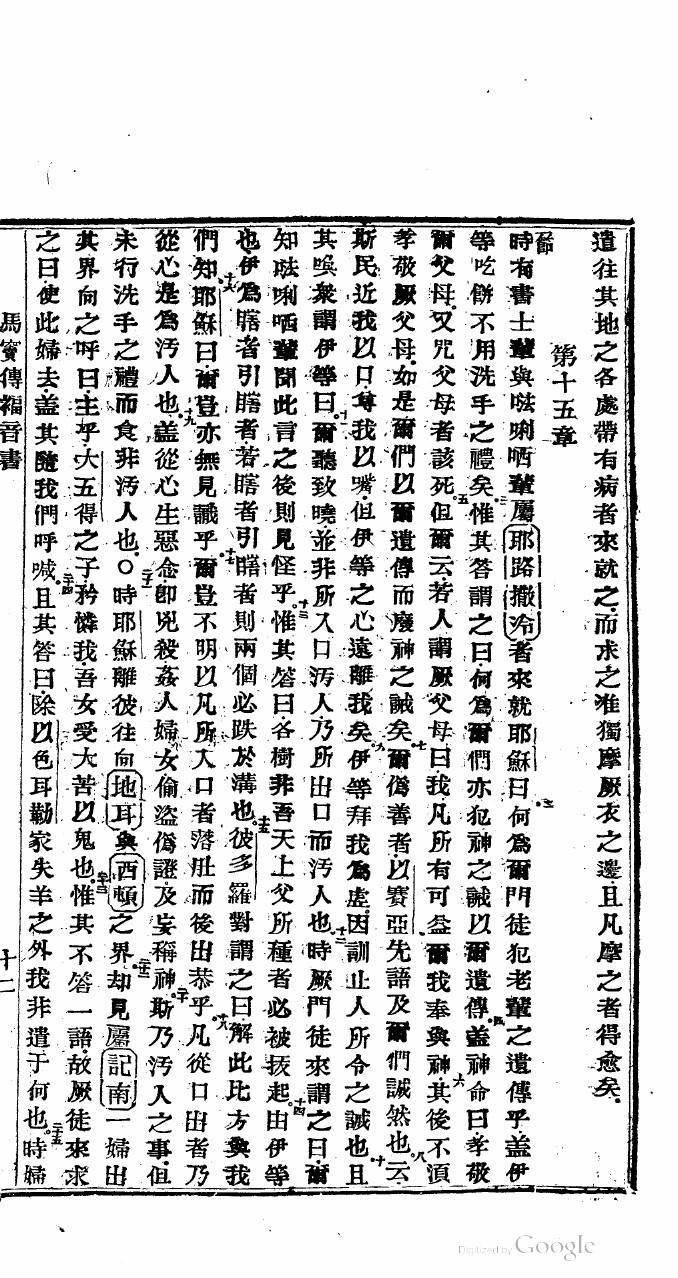 遣往其地之各處帶有病者來就之而求之准獨摩厥衣之邊且凡摩之者得愈矣
第十五章
節時有書士輩與𠵽唎哂輩屬耶路撒冷者來就耶穌曰二何爲爾門徒犯老輩之遺傳乎蓋伊
等吃餅不用洗手之禮矣三惟其答謂之曰何爲爾們亦犯神之誡以爾遺傳四蓋神命曰孝敬
爾父母又咒父母者該死五但爾云若人謂厥父母曰我凡所有可益爾我奉與神六其後不須
孝敬厥父母如是爾們以爾遺傳而廢神之誡矣七爾僞善者以賽亞先語及爾們誠然也八云
斯民近我以口尊我以嘴但伊等之心遠離我矣九伊等拜我爲虛因訓止人所令之誡也十且
其喚衆謂伊等曰爾聽致曉十一並非所入口汚人乃所出口而汚人也十二時厥門徒來謂之曰爾
知𠵽唎哂輩聞此言之後則見怪乎十三惟其答曰各樹非吾天上父所種者必被拔起十四由伊等
也伊爲瞎者引瞎者若瞎者引瞎者則兩個必跌於溝也十五彼多羅對謂之曰解此比方與我
們知十六耶穌曰爾豈亦無見識乎十七爾豈不明以凡所入口者落肚而後出恭乎十八凡從口出者乃
從心是爲汚人也十九蓋從心生惡念卽兇殺姦人婦女偷盜僞證及妄稱神二十斯乃汚人之事但
未行洗手之禮而食非汚人也〇二十一時耶穌離彼往向地耳與西頓之界二十二却見屬記南一婦出
其界向之呼曰主乎大五得之子矜憐我吾女受大苦以鬼也二十三惟其不答一語故厥徒來求
之曰使此婦去蓋其隨我們呼喊二十四且其答曰除以色耳勒家失羊之外我非遣于何也二十五時婦
馬寶傳福音書
十二
Digitized by Google